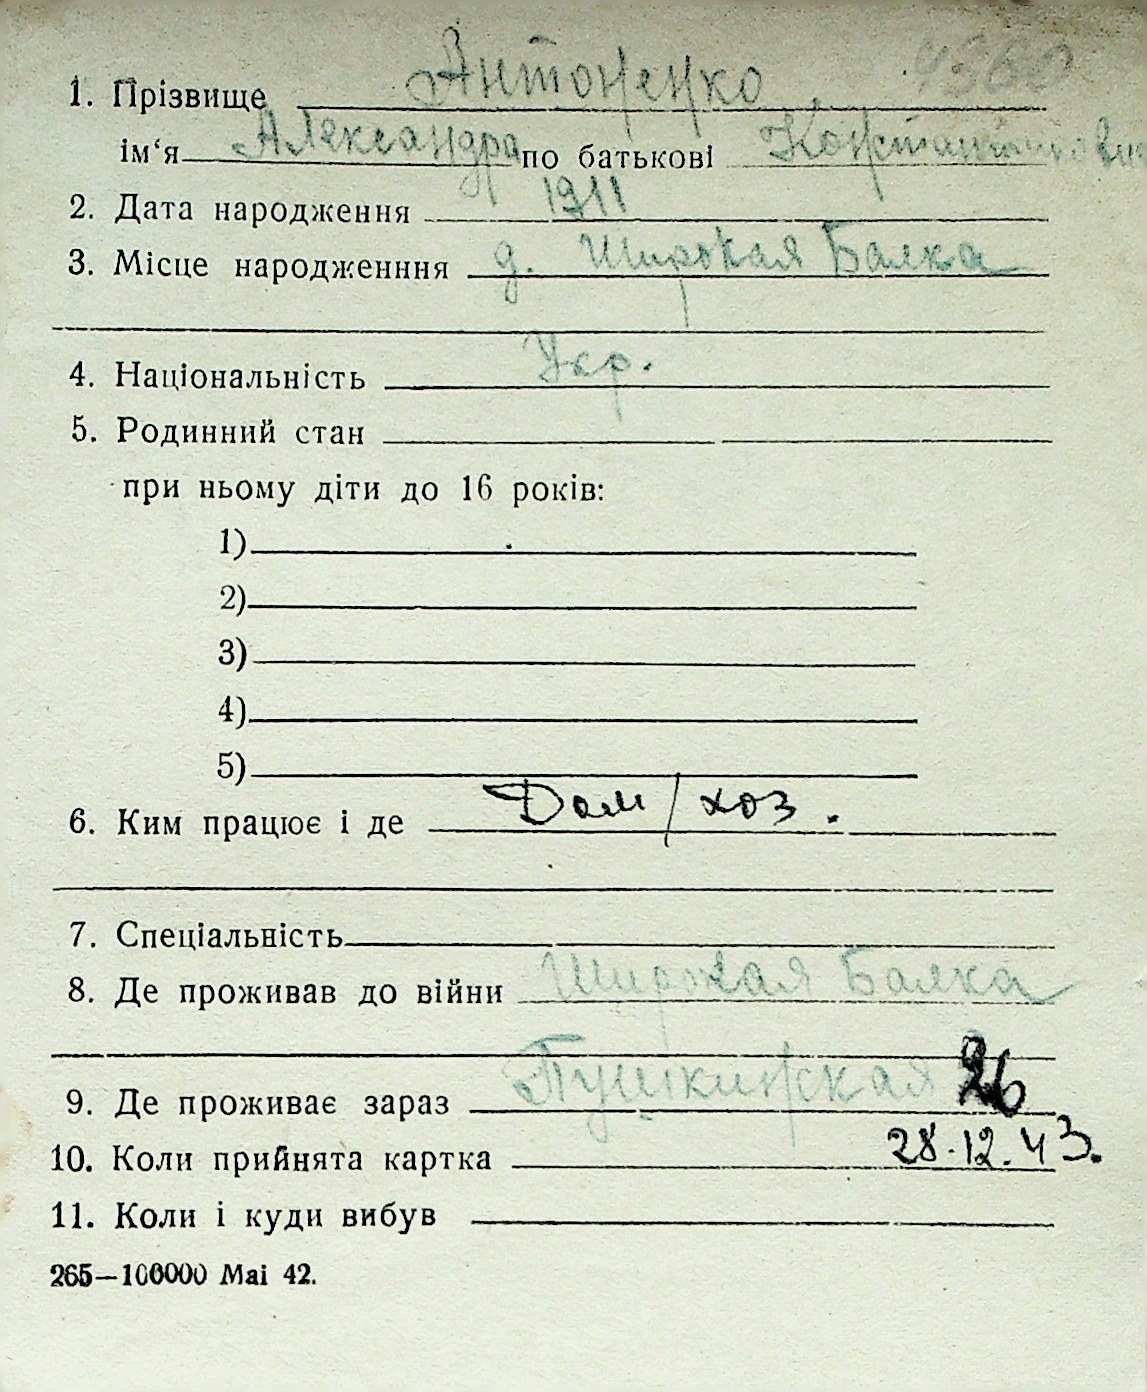 1. Прізвище Антоненко
ім‘я Александра по батькові
2. Дата народження 1911
3. Місце народженння д. Широкая Балка
4. Національність Укр.
5. Родинний стан
при ньому діти до 16 років:
1)
2)
3)
4)
5)
6. Ким працює і де Дом/хоз.
7. Спеціальність
8. Де проживав до війни Широкая Балка
9. Де проживає зараз Пушкинская 26
10. Коли прийнята картка 28.12.43.
11. Коли і куди вибув
265—100000 Mai 42.